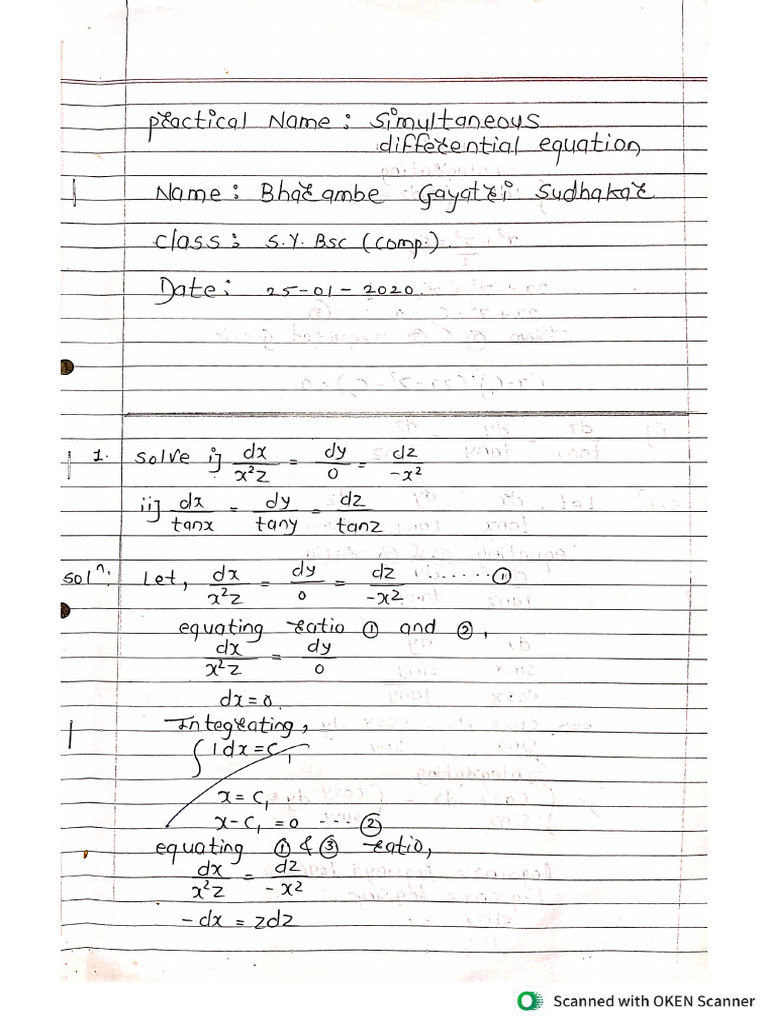 Practical Name : Simultaneous
differential equation
Name : Bharambe Gayatri Sudhakar
class : S.Y. Bsc (comp.)
Date : 25-01-2020
1. solve i] dx/x²z = dy/0 = dz/-x²
ii] dx/tanx = dy/tany = dz/tanz
solⁿ: Let, dx/x²z = dy/0 = dz/-x² ...... ①
equating ratio ① and ②,
dx/x²z = dy/0
dx = 0
Integrating,
∫1dx = C₁
x = C₁
x - C₁ = 0 ---- ②
equating ① & ③ ratio,
dx/x²z = dz/-x²
-dx = zdz
Scanned with OKEN Scanner